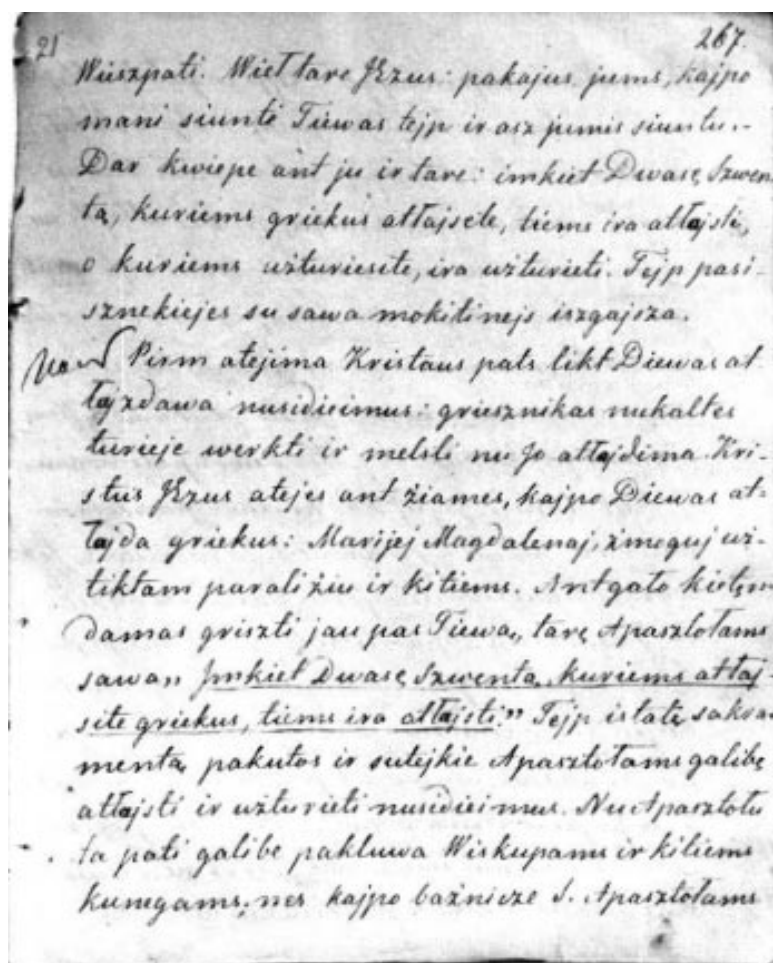 21 267.
Wieszpati. Wieł tare Jezus: pakajus jums, kajpo
mani siunte Tiewas tejp ir asz jumis siuntu.-
Dar kwiepe ant ju ir tare: imkiet Dwasę Szwen
tą, kuriems griekus atłajsete, tiems ira atłajsti,
o kuriems użturiesite, ira użturieti. Tejp pasi-
sznekiejes su sawa mokitinejs iszgajsza.
Pirm atejima Kristaus pats likt Diewas at
łajzdawa nusidieimus: griesznikas nukaltes
turieje werkti ir melsti nu Jo atłajdima Kri-
stus Jezus atejes ant żiames, kajpo Diewas at-
łajda griekus: Marijej Magdalenaj, żmoguj uż-
tiktam paraliżiu ir kitiems. Ant gało kietęn
damas griszti jau pas Tiewa„ tarę Apasztołams
sawa„ Jmkiet Dwasę Szwentą, kuriems atłaj-
site griekus, tiems ira atłajsti." Tejp istatę sakra-
mentą pakutos ir sutejkie Apasztołams galibę
atłajsti ir użturieti nusidieimus. Nu Apasztołu
ta pati galibe pakluwa Wiskupams ir kitiems
kunegams, nes kajpo bażnicze S. Apasztołams